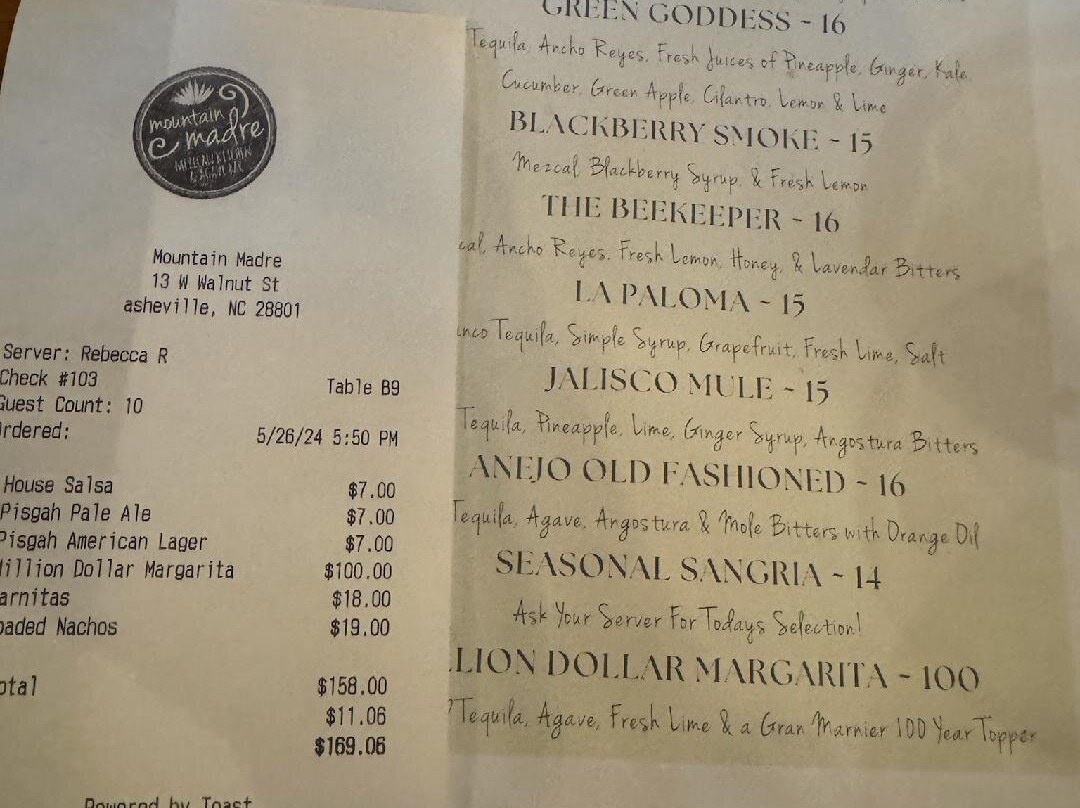 mountain
madre
Mountain Madre
13 W Walnut St
asheville, NC 28801
Server: Rebecca R
Check #103
Table B9
Guest Count: 10
rdered:
5/26/24 5:50 PM
House Salsa $7.00
Pisgah Pale Ale $7.00
Pisgah American Lager $7.00
illion Dollar Margarita $100.00
arnitas $18.00
oaded Nachos $19.00
otal $158.00
$11.06
$169.06
Powered by Toast
GREEN GODDESS - 16
Tequila, Ancho Reyes, Fresh Juices of Pineapple, Ginger, Kale,
Cucumber, Green Apple, Cilantro, Lemon & Lime
BLACKBERRY SMOKE - 15
Mezcal, Blackberry Syrup, & Fresh Lemon
THE BEEKEEPER - 16
cal, Ancho Reyes, Fresh Lemon, Honey, & Lavendar Bitters
LA PALOMA - 15
nco Tequila, Simple Syrup, Grapefruit, Fresh Lime, Salt
JALISCO MULE - 15
Tequila, Pineapple, Lime, Ginger Syrup, Angostura Bitters
ANEJO OLD FASHIONED - 16
Tequila, Agave, Angostura & Mole Bitters with Orange Oil
SEASONAL SANGRIA - 14
Ask Your Server For Todays Selection!
LION DOLLAR MARGARITA - 100
Tequila, Agave, Fresh Lime & a Gran Marnier 100 Year Topper